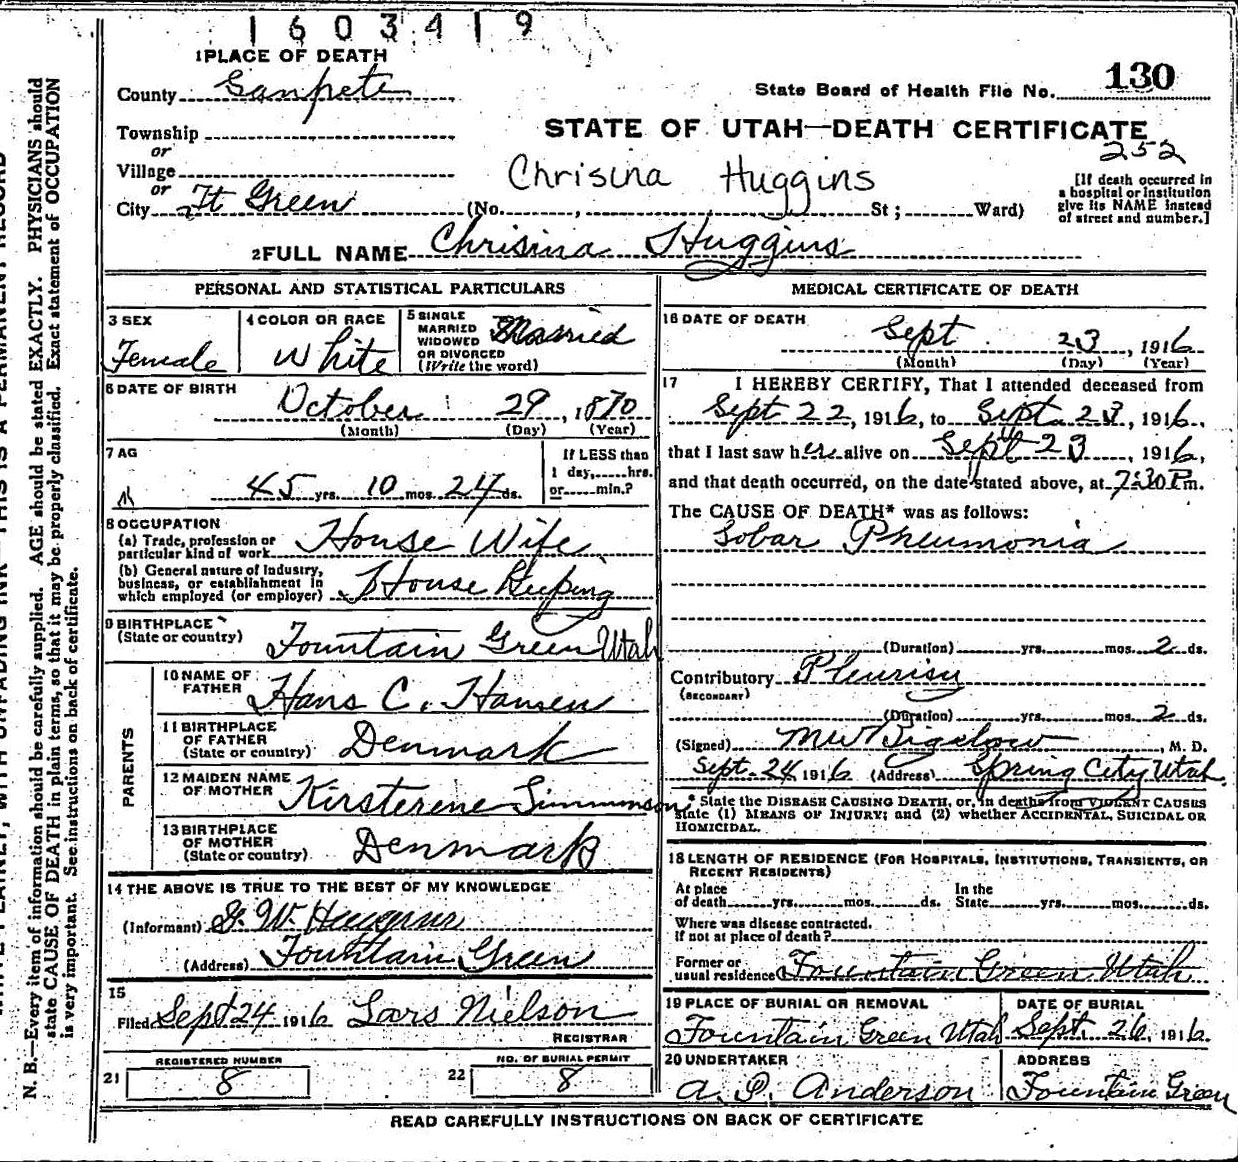 1603419
1 PLACE OF DEATH
County Sanpete
State Board of Health File No. 130
Township
or
STATE OF UTAH—DEATH CERTIFICATE
252
Village
or
Chrisina Huggins
City Ft Green (No. , St ; Ward)
[If death occurred in
a hospital or institution
give its NAME instead
of street and number.]
2 FULL NAME Chrisina Huggins
PERSONAL AND STATISTICAL PARTICULARS
3 SEX
Female
4 COLOR OR RACE
White
5 SINGLE
MARRIED
WIDOWED
OR DIVORCED
(Write the word)
Married
6 DATE OF BIRTH
October 29, 1870
(Month) (Day) (Year)
7 AG
45 yrs. 10 mos. 24 ds.
If LESS than
1 day, hrs.
or min.?
8 OCCUPATION
(a) Trade, profession or
particular kind of work House Wife
(b) General nature of industry,
business, or establishment in
which employed (or employer) House Keeping
9 BIRTHPLACE
(State or country) Fountain Green Utah
PARENTS
10 NAME OF
FATHER Hans C. Hansen
11 BIRTHPLACE
OF FATHER
(State or country) Denmark
12 MAIDEN NAME
OF MOTHER Kirsterene Simmonson
13 BIRTHPLACE
OF MOTHER
(State or country) Denmark
14 THE ABOVE IS TRUE TO THE BEST OF MY KNOWLEDGE
(Informant) W. Huggins
(Address) Fountain Green
15
Filed Sept 24 1916 Lars Nielson
REGISTRAR
REGISTERED NUMBER
21 8
NO. OF BURIAL PERMIT
22 8
MEDICAL CERTIFICATE OF DEATH
16 DATE OF DEATH
Sept. 23, 1916
(Month) (Day) (Year)
17 I HEREBY CERTIFY, That I attended deceased from
Sept 22, 1916, to Sept. 23, 1916.,
that I last saw her alive on Sept 23, 1916,
and that death occurred, on the date stated above, at 7:30 P.m.
The CAUSE OF DEATH* was as follows:
Lobar Pneumonia
(Duration) yrs. mos. 2 ds.
Contributory Pleurisy
(SECONDARY)
(Duration) yrs. mos. 2 ds.
(Signed) MW Bigelow, M. D.
Sept. 24 1916 (Address) Spring City Utah
* State the DISEASE CAUSING DEATH, or, in deaths from VIOLENT CAUSES
state (1) MEANS OF INJURY; and (2) whether ACCIDENTAL, SUICIDAL OR
HOMICIDAL.
18 LENGTH OF RESIDENCE (FOR HOSPITALS, INSTITUTIONS, TRANSIENTS, OR
RECENT RESIDENTS)
At place
of death yrs. mos. ds.
In the
State yrs. mos. ds.
Where was disease contracted.
If not at place of death?
Former or
usual residence Fountain Green Utah
19 PLACE OF BURIAL OR REMOVAL
Fountain Green Utah
DATE OF BURIAL
Sept. 26, 1916.
20 UNDERTAKER
A. P. Anderson
ADDRESS
Fountain Green
READ CAREFULLY INSTRUCTIONS ON BACK OF CERTIFICATE
N. B.—Every item of information should be carefully supplied. AGE should be stated EXACTLY. PHYSICIANS should
state CAUSE OF DEATH in plain terms, so that it may be properly classified. Exact statement of OCCUPATION
is very important. See instructions on back of certificate.